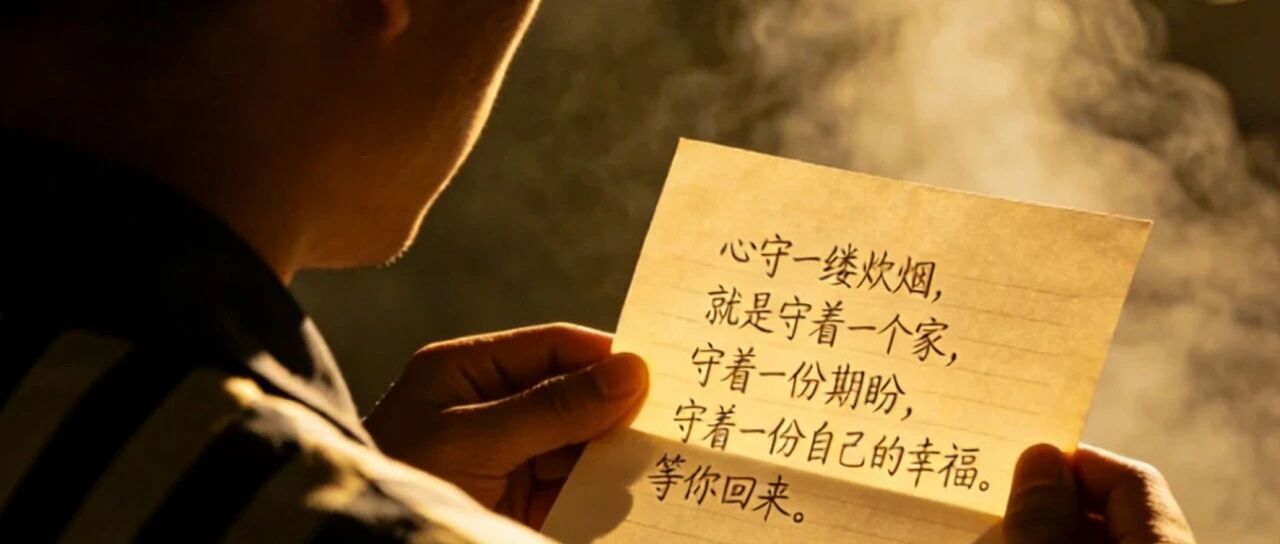 心守一缕炊烟，
就是守着一个家，
守着一份期盼，
守着一份自己的幸福。
等你回来。